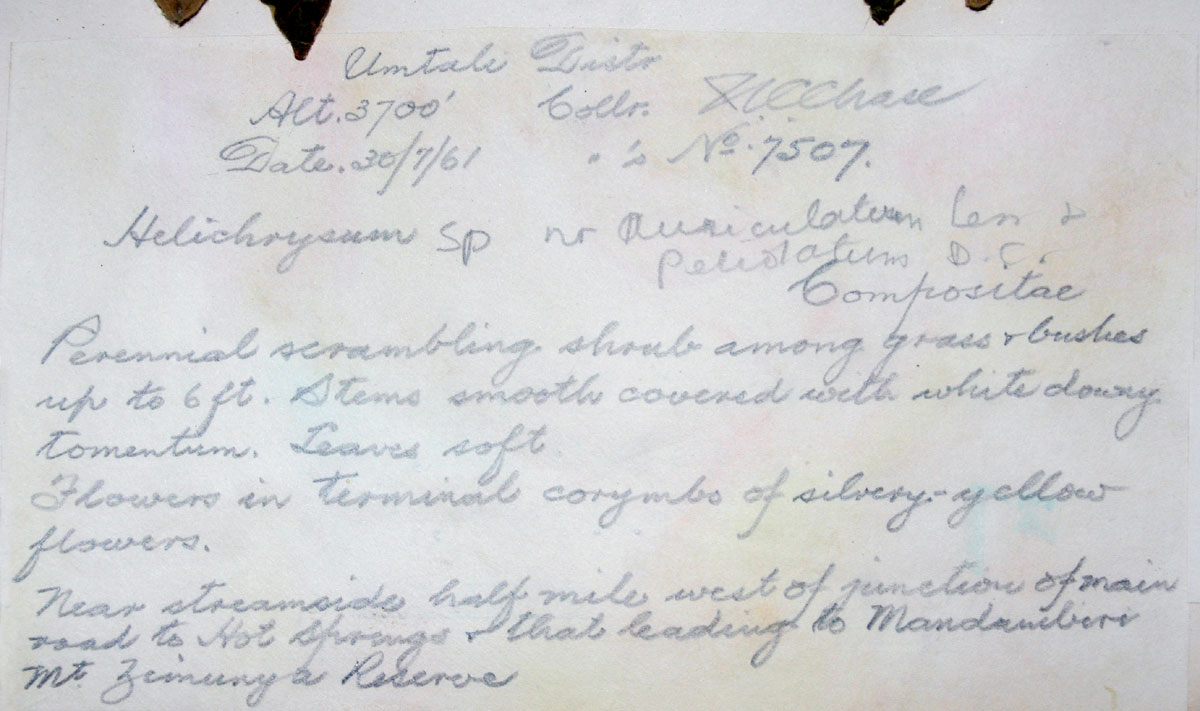 Umtali Distr
Alt. 3700' Collr. N.C. Chase
Date. 30/7/61 " 's No. 7507.
Helichrysum sp nr auriculatum Less &
petiolatum D.C.
Compositae
Perennial scrambling shrub among grass & bushes
up to 6 ft. Stems smooth covered with white downy
tomentum. Leaves soft
Flowers in terminal corymbs of silvery-yellow
flowers.
Near streamside half mile west of junction of main
road to Hot Springs & that leading to Mandambiri
Mt. Zimunya Reserve